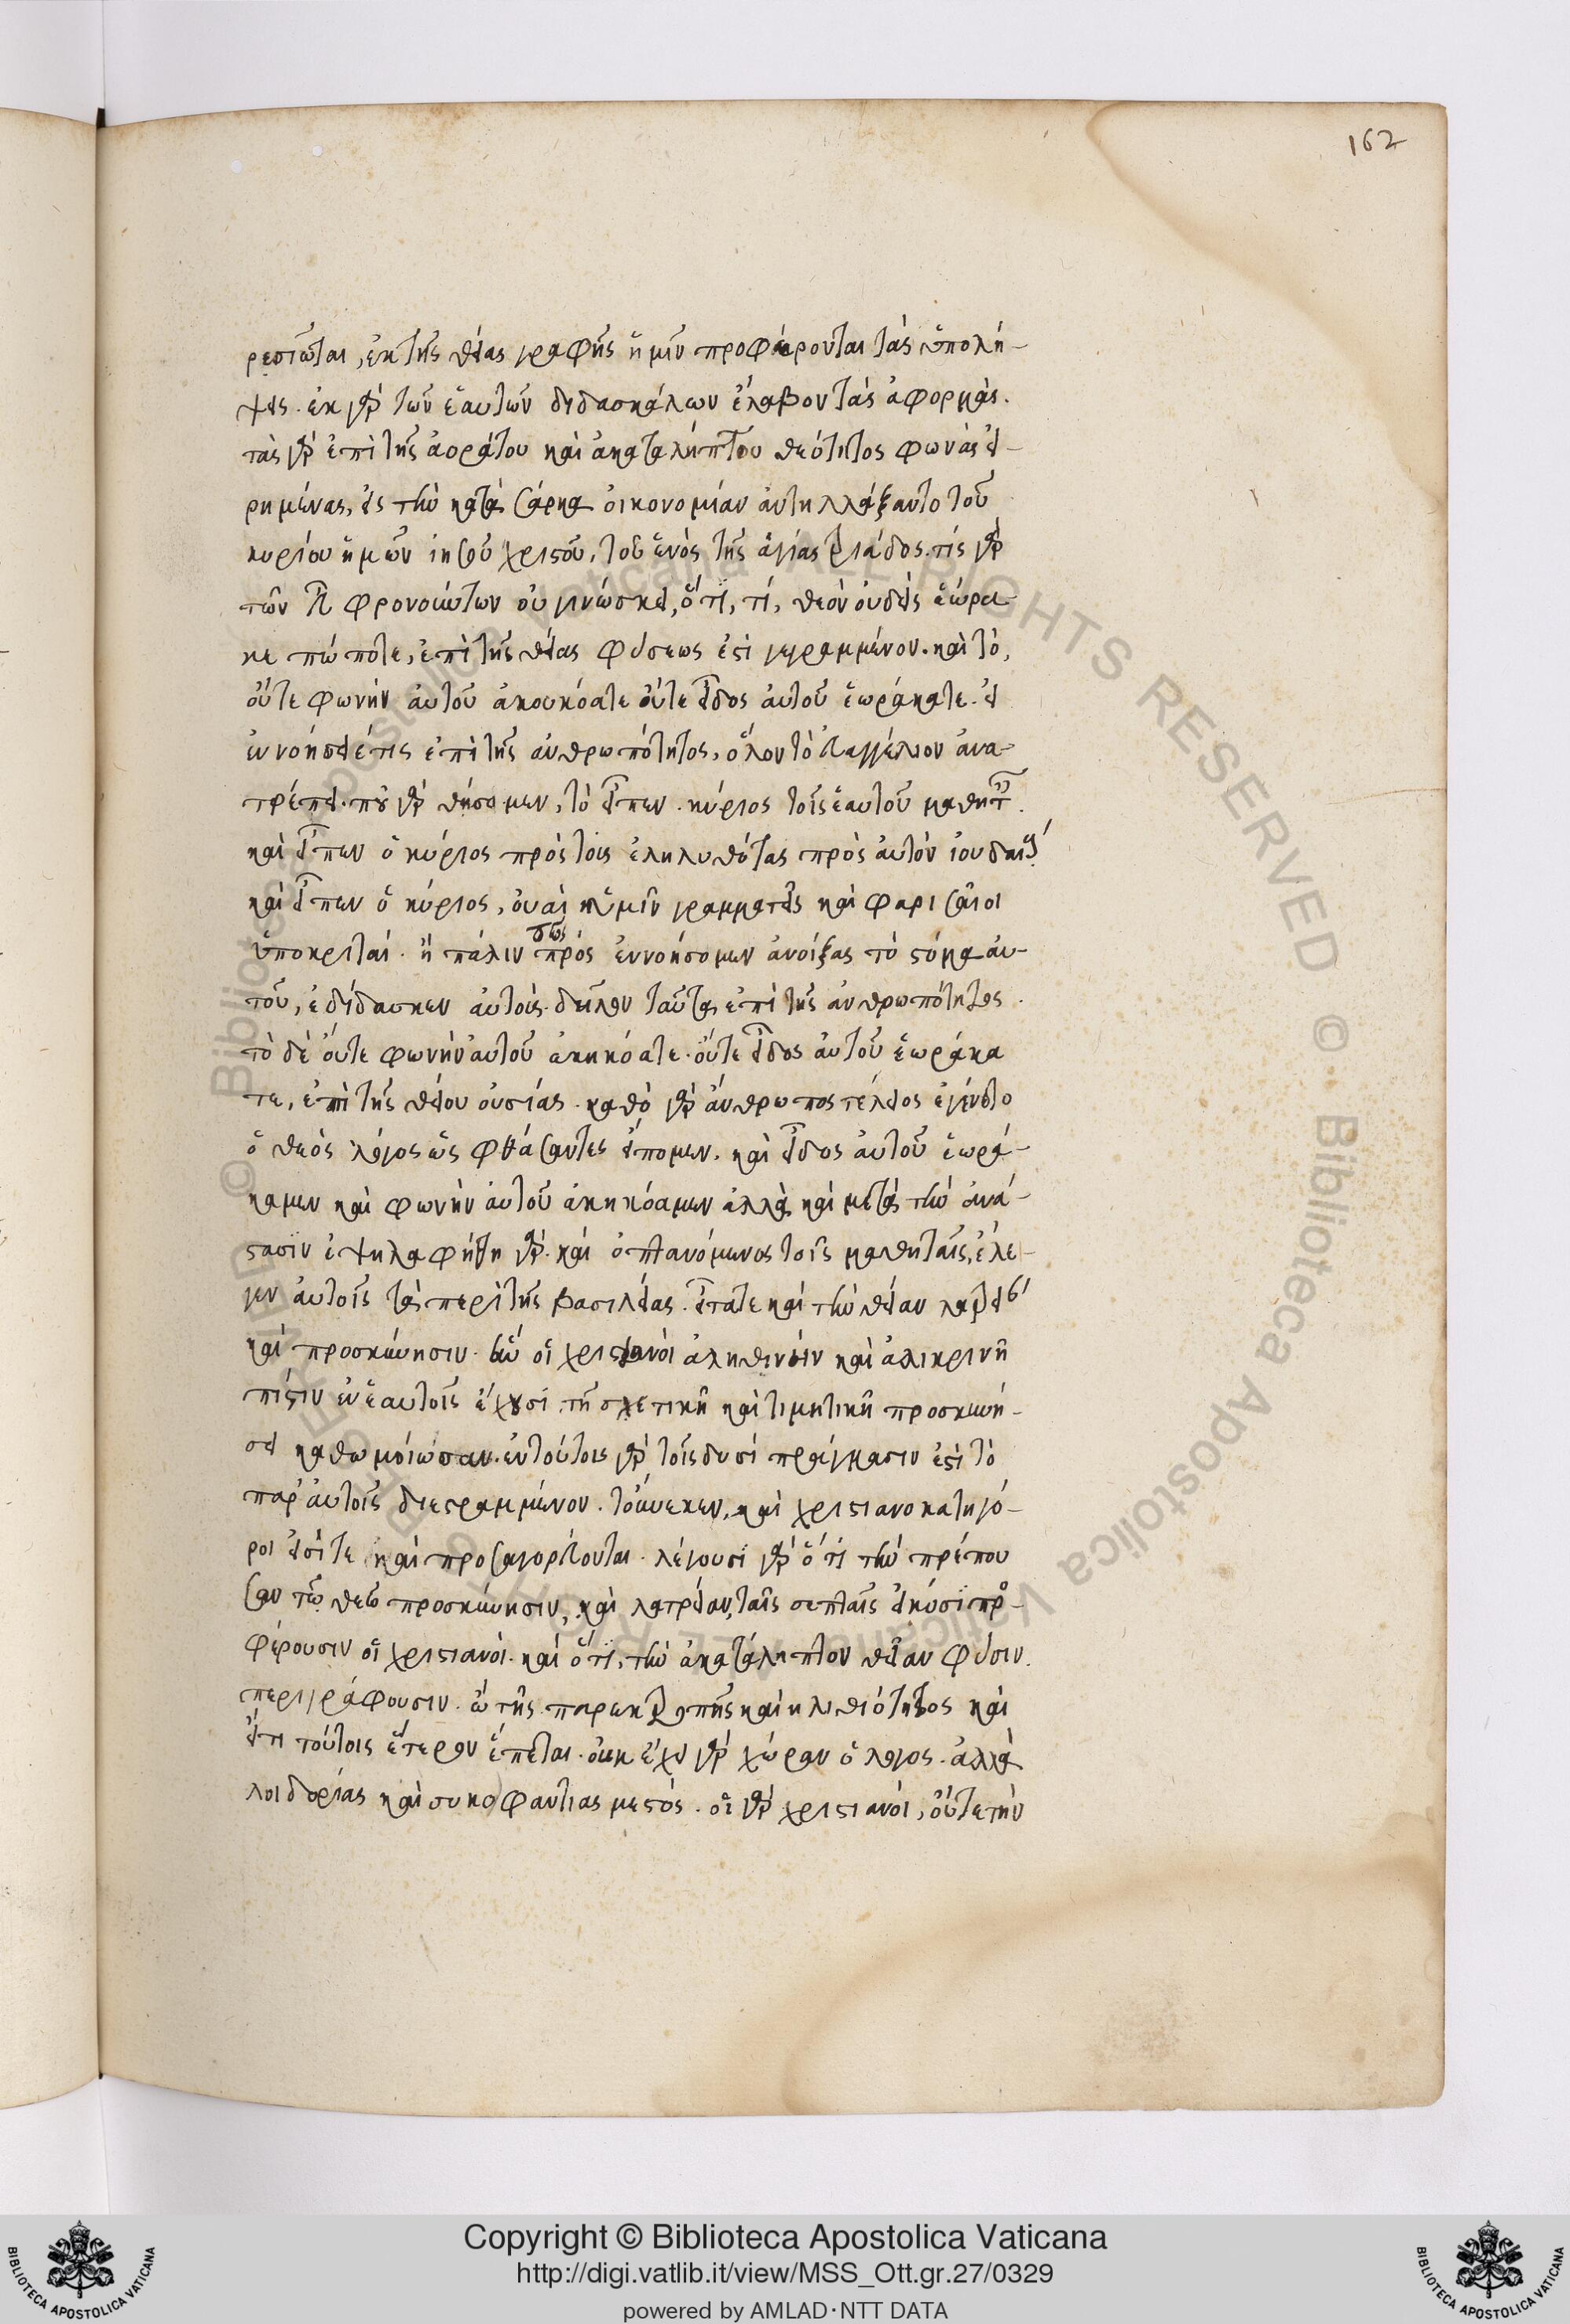 162
ρεσιῶται, ἐκ τῆς θείας γραφῆς ἡμῖν προφέρονται τὰς ὑπολή-
ψεις. ἐκ γὰρ τῶν ἑαυτῶν διδασκάλων ἔλαβον τὰς ἀφορμάς.
τὰς γὰρ ἐπὶ τῆς ἀοράτου καὶ ἀκαταλήπτου θεότητος φωνὰς εἰ-
ρημένας, εἰς τὴν κατὰ σάρκα οἰκονομίαν ἀντηλλάξαντο τοῦ
κυρίου ἡμῶν ἰησοῦ χριστοῦ, τοῦ ἑνὸς τῆς ἁγίας τριάδος. τίς γὰρ
τῶν εὖ φρονούντων οὐ γινώσκει, ὅτι, τί, θεὸν οὐδεὶς ἑώρα-
κε πώποτε, ἐπὶ τῆς θείας φύσεως ἐστὶ γεγραμμένον. καὶ τὸ,
οὔτε φωνὴν αὐτοῦ ἀκουκόατε οὔτε εἶδος αὐτοῦ ἑωράκατε. εἰ
ἐννοήσει τις ἐπὶ τῆς ἀνθρωπότητος, ὅλον τὸ εὐαγγέλιον ἀνα-
τρέπει. ποῦ γὰρ θήσομεν, τὸ εἶπεν κύριος τοῖς ἑαυτοῦ μαθηταῖς.
καὶ εἶπεν ὁ κύριος πρὸς τοὺς ἐληλυθότας πρὸς αὐτὸν ἰουδαίους
καὶ εἶπεν ὁ κύριος, οὐαὶ ὑμῖν γραμματεῖς καὶ φαρισαῖοι
ὑποκριταί. ἢ πάλιν πῶς ἐννοήσομεν ἀνοίξας τὸ στόμα αὐ-
τοῦ, ἐδίδασκεν αὐτούς. δῆλον ταῦτα ἐπὶ τῆς ἀνθρωπότητος.
τὸ δὲ οὔτε φωνὴν αὐτοῦ ἀκηκόατε. οὔτε εἶδος αὐτοῦ ἑωράκα
τε, ἐπὶ τῆς θείου οὐσίας. καθὸ γὰρ ἄνθρωπος τέλειος ἐγένετο
ὁ θεὸς λόγος ὡς φθάσαντες εἴπομεν, καὶ εἶδος αὐτοῦ ἑωρά-
καμεν καὶ φωνὴν αὐτοῦ ἀκηκόαμεν ἀλλὰ καὶ μετὰ τὴν ἀνά-
στασιν ἐψηλαφήθη γάρ. καὶ ὀπτανόμενος τοῖς μαθηταῖς, ἔλε-
γεν αὐτοῖς τὰ περὶ τῆς βασιλείας. εἴπατε καὶ τὴν θείαν
καὶ προσκύνησιν. ἣν οἱ χριστιανοὶ ἀληθινὴν καὶ εἰλικρινῆ
πίστιν ἐν ἑαυτοῖς ἔχουσι τῇ σχετικῇ καὶ τιμητικῇ προσκυνή-
σει καθωμοίωσαν. ἐν τούτοις γὰρ τοῖς δυσὶ πράγμασιν ἐστὶ τὸ
παρ' αὐτοῖς διεστραμμένον. τοὔνεκεν, καὶ χριστιανοκατηγό-
ροι εἰσί τε καὶ προσαγορεύονται. λέγουσι γὰρ ὅτι τὴν πρέπου
σαν τῷ θεῷ προσκύνησιν, καὶ λατρείαν, ταῖς σεπταῖς εἰκόσι προ-
φέρουσιν οἱ χριστιανοί. καὶ ὅτι, τὴν ἀκατάληπτον θείαν φύσιν
περιγράφουσιν. ὢ τῆς παρεκτροπῆς καὶ ἠλιθιότητος καὶ
εἴ τι τούτοις ἕτερον ἕπεται. οὐκ ἔχει γὰρ χώραν ὁ λόγος. ἀλλὰ
λοιδορίας καὶ συκοφαντίας μεστός. οἱ γὰρ χριστιανοὶ, οὔτε τὴν
© Biblioteca Apostolica Vaticana ALL RIGHTS RESERVED
© Biblioteca Apostolica Vaticana ALL RIGHTS RESERVED
BIBLIOTECA APOSTOLICA VATICANA
Copyright © Biblioteca Apostolica Vaticana
http://digi.vatlib.it/view/MSS_Ott.gr.27/0329
powered by AMLAD·NTT DATA
BIBLIOTECA APOSTOLICA VATICANA